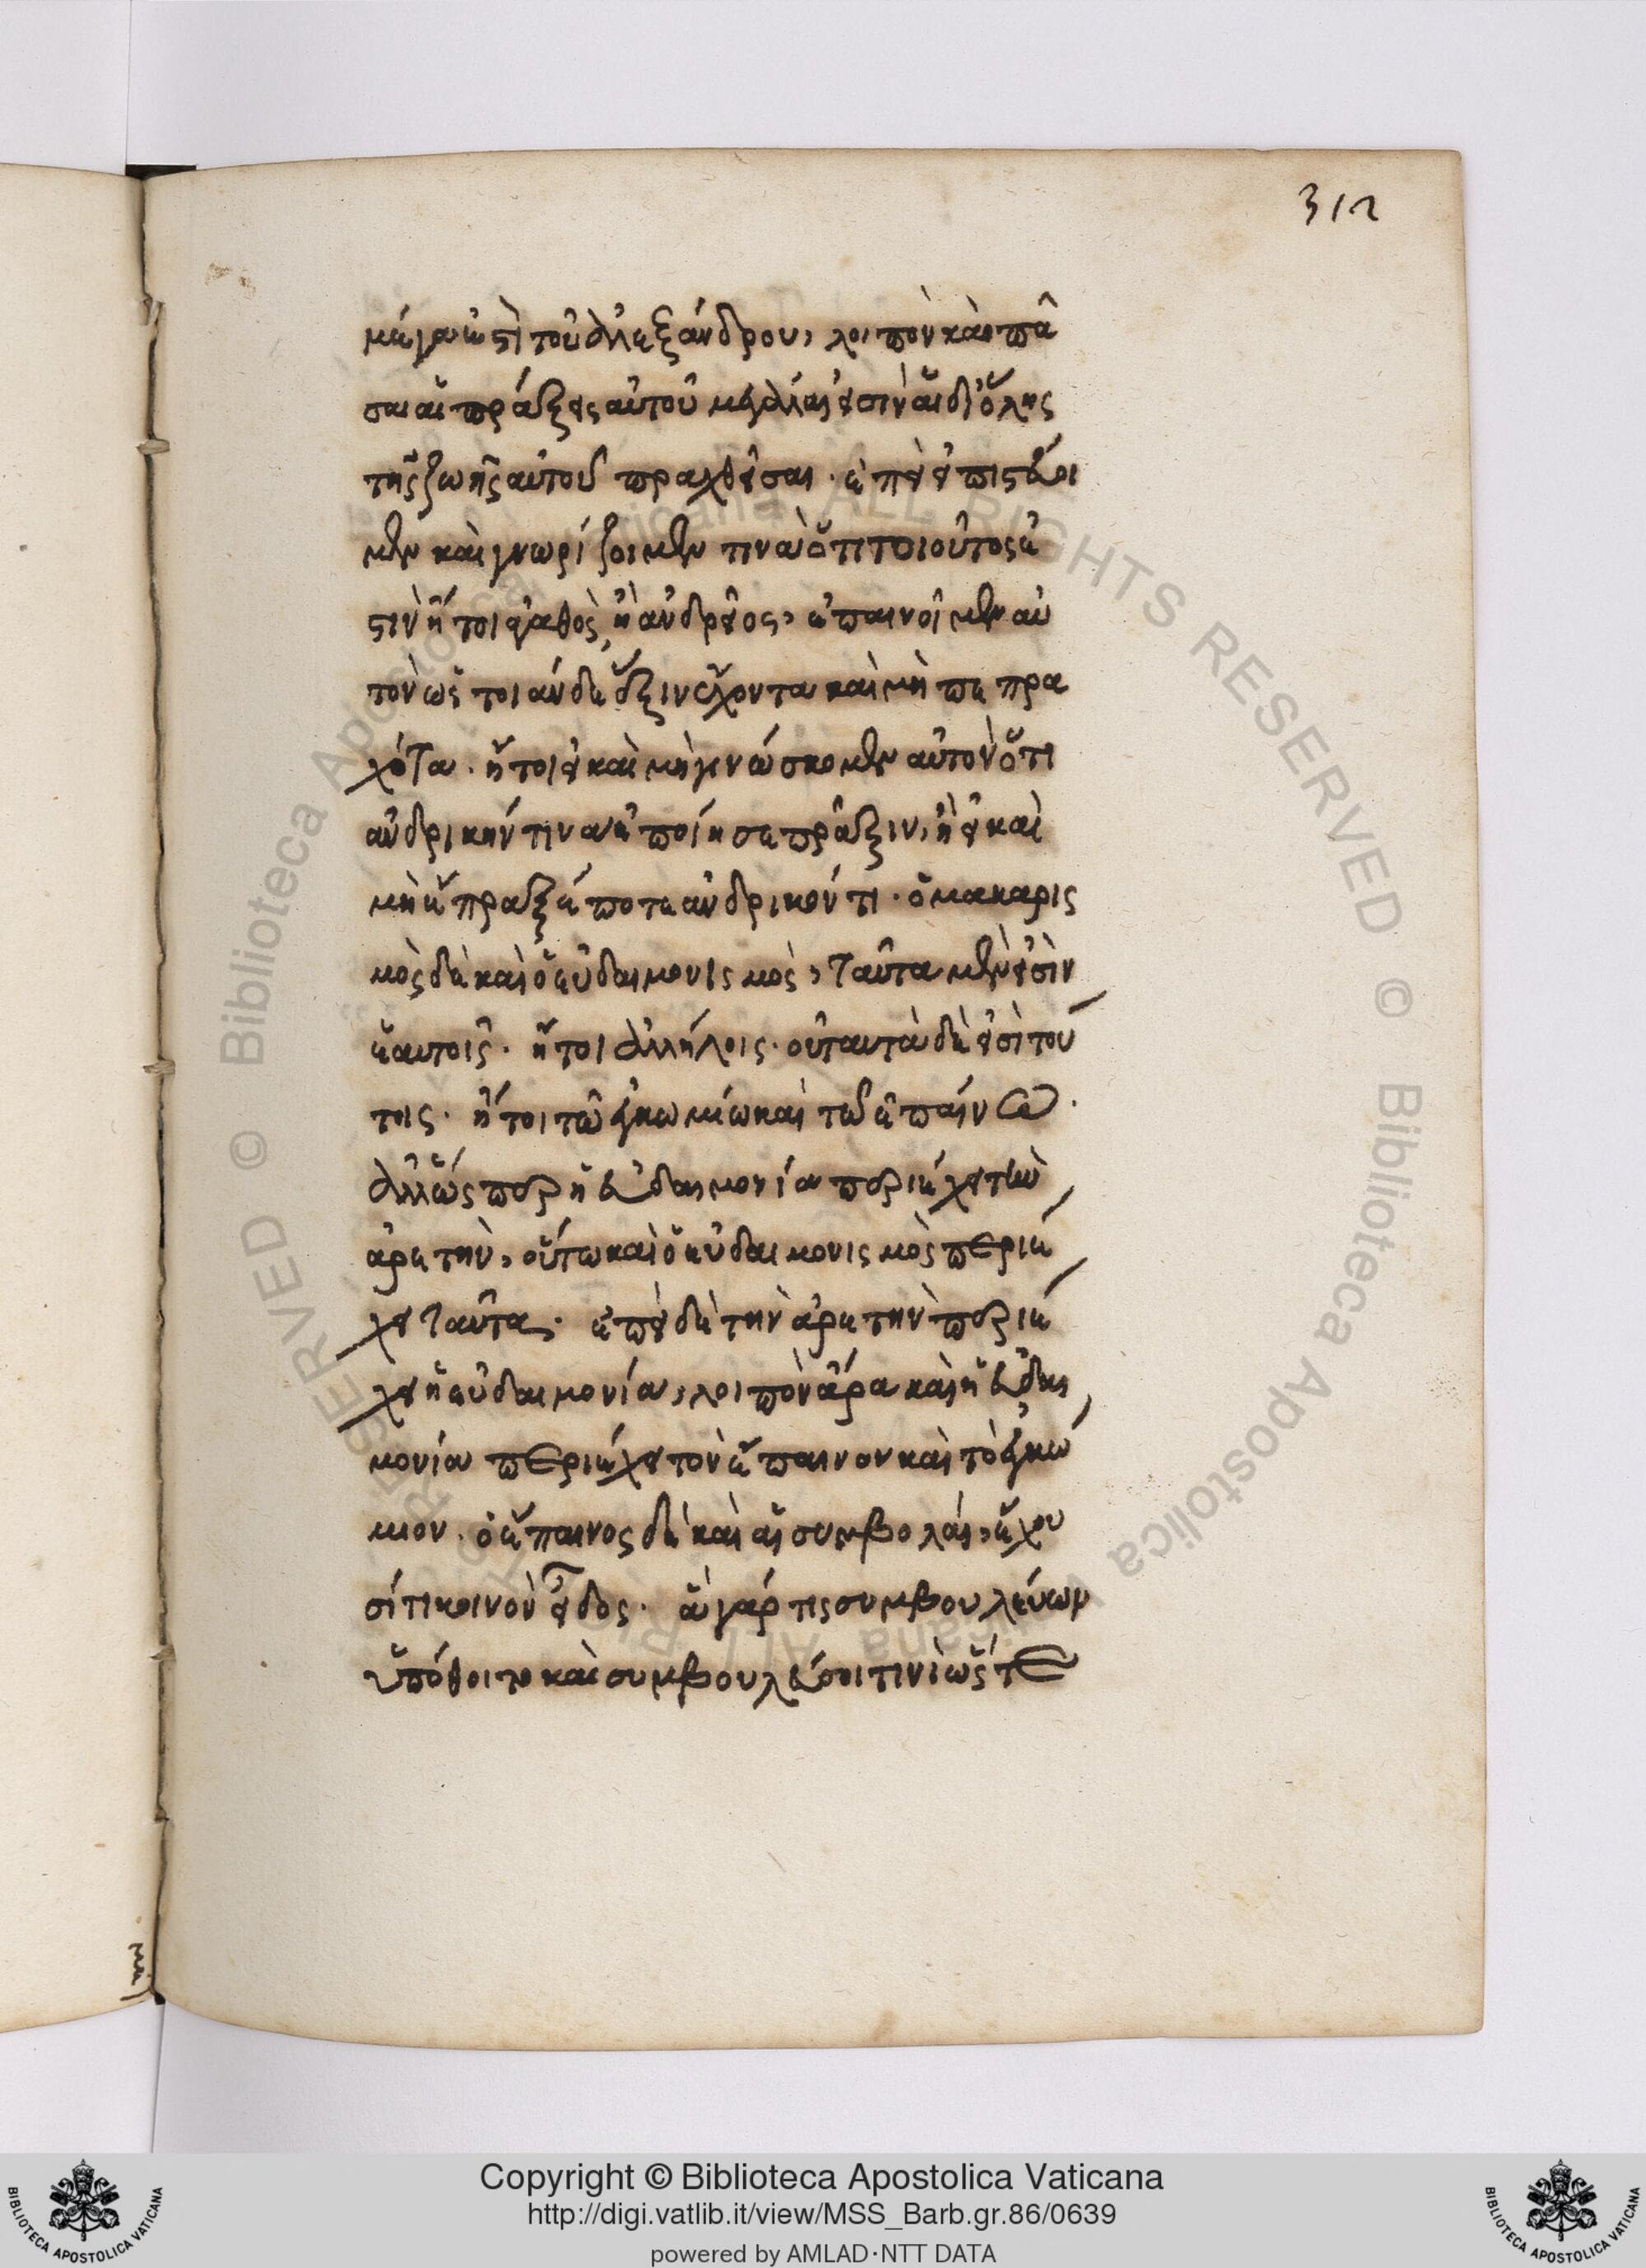 312
μέγα ἐστὶ τοῦ ἀλεξάνδρου, λοιπὸν καὶ πᾶ
σαι αἱ πράξεις αὐτοῦ μεγάλαι εἰσὶν αἱ δι' ὅλης
τῆς ζωῆς αὐτοῦ πραχθεῖσαι. ἐπεὶ εἰ πιστεύοι
μεν καὶ γνωρίζοιμεν τινα ὅτι τοιοῦτος ἐ
στὶν ἤτοι ἀγαθὸς, ἢ ἀνδρεῖος, ἐπαινοῖμεν αὐ
τὸν ὡς τοιάνδε ἕξιν ἔχοντα καὶ μὴ πεπρα
χότα. ἤτοι εἰ καὶ μὴ γινώσκομεν αὐτὸν ὅτι
ἀνδρικήν τινα ἐποίησε πρᾶξιν, ἢ εἰ καὶ
μὴ ἔπραξέ ποτε ἀνδρικόν τι. ὁ μακαρισ
μὸς δὲ καὶ ὁ εὐδαιμονισμὸς, ταῦτα μέν εἰσὶν
ἑαυτοῖς. ἤτοι ἀλλήλοις. οὐ ταυτὰ δέ εἰσὶ τού
τοις. ἤτοι τῶ ἐγκωμίω καὶ τῶ ἐπαίνω.
ἀλλ' ὥσπερ ἡ εὐδαιμονία περιέχει τὴν
ἀρετὴν, οὕτω καὶ ὁ εὐδαιμονισμὸς περιέ
χει ταῦτα. ἐπεὶ δὲ τὴν ἀρετὴν περιέ
χει ἡ εὐδαιμονία, λοιπὸν ἄρα καὶ ἡ εὐδαι
μονία περιέχει τὸν ἔπαινον καὶ τὸ ἐγκώ
μιον. ὁ ἔπαινος δὲ καὶ αἱ συμβολαὶ, ἔχου
σί τι κοινὸν εἶδος. ἃ γάρ τις συμβουλεύων
ὑπόθοιτο καὶ συμβουλεύσοι τινὶ ὥστε
Copyright © Biblioteca Apostolica Vaticana
http://digi.vatlib.it/view/MSS_Barb.gr.86/0639
powered by AMLAD·NTT DATA